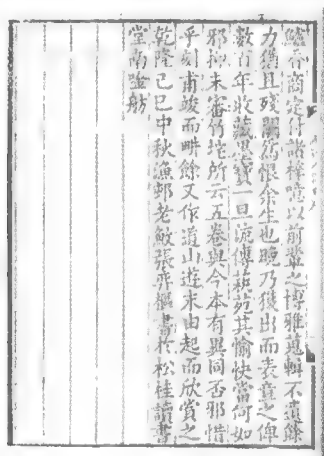 鱸香商定付諸梓噫以前輩之博雅蒐輯不遺餘
力猶且殘闕爲恨余生也晚乃獲出而表章之俾
數百年收藏墨寶一旦流傳藝苑其愉快當何如
邪抑未審竹垞所云五卷與今本有異同否邪惜
乎刻甫竣而畊餘又作道山遊末由起而欣賞之
乾隆己巳中秋漁邨老敏張弈樞書於松桂讀書
堂南蓋舫